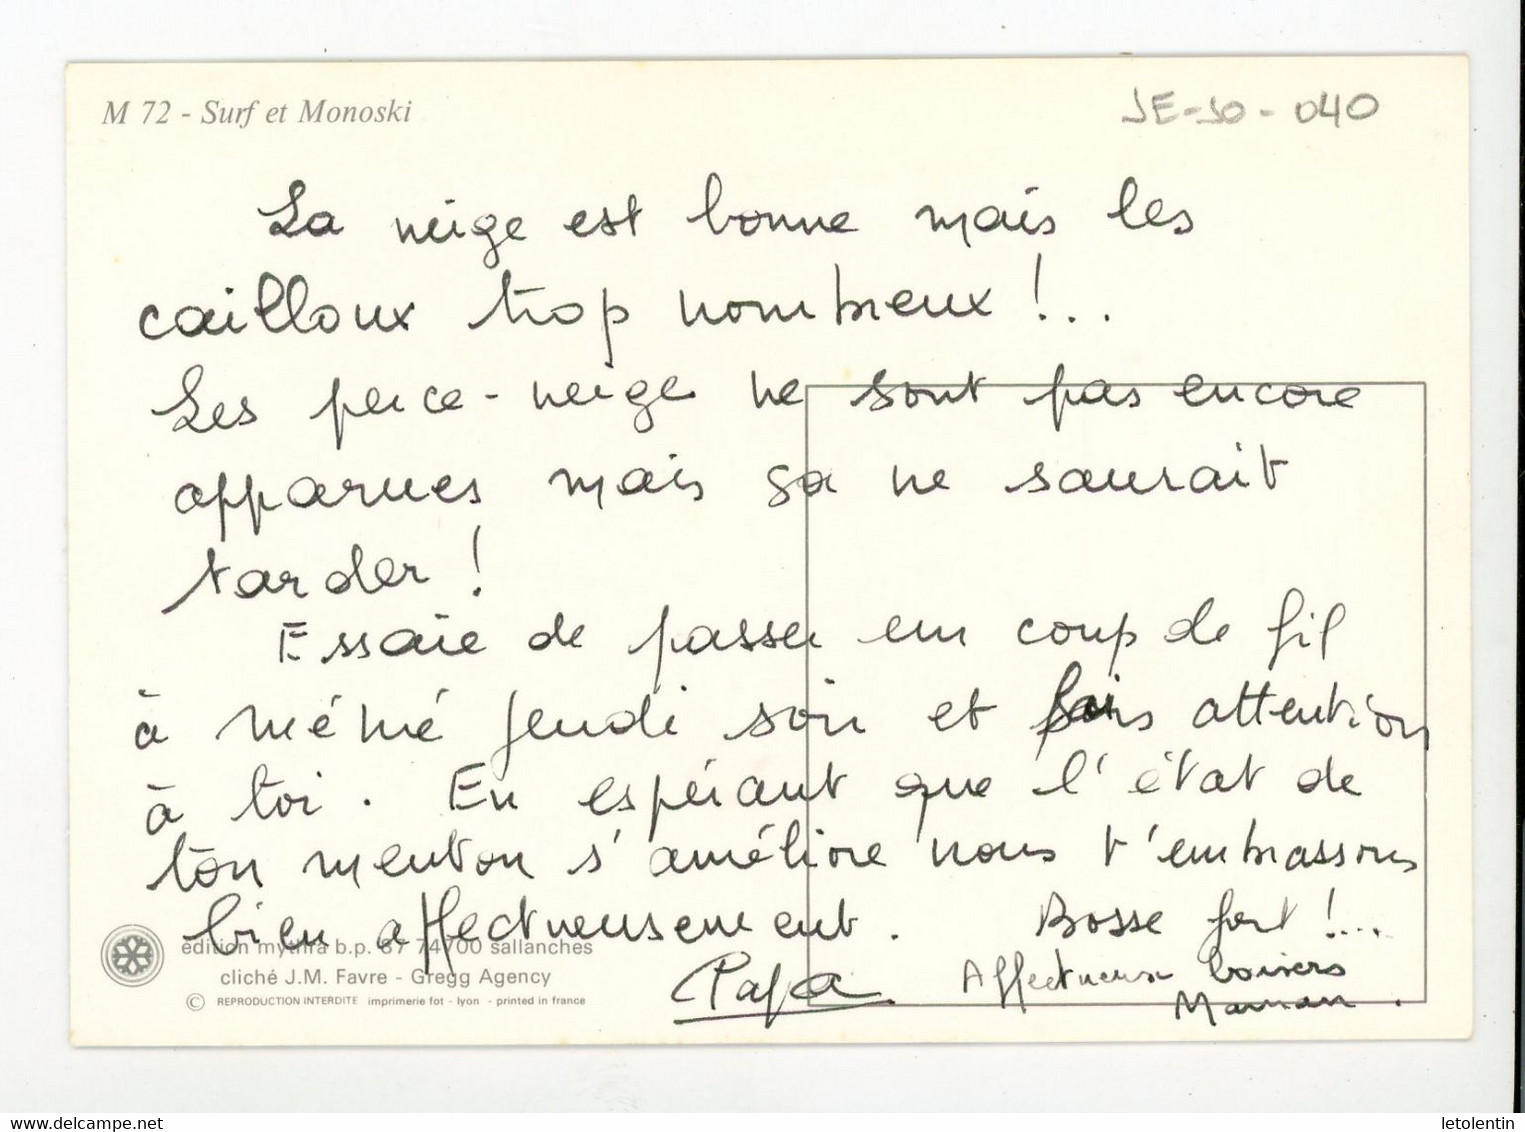 M 72 - Surf et Monoski
JE-JO-040
La neige est bonne mais les
cailloux trop nombreux !..
Les perce-neige ne sont pas encore
apparues mais ça ne saurait
tarder !
Essaie de passer un coup de fil
à mémé jeudi soir et fais attention
à toi. En espérant que l'état de
ton menton s'améliore nous t'embrassons
bien affectueusement. Bosse fort !...
Papa Affectueux baisers
Maman.
édition mythra b.p. 87 74700 sallanches
cliché J.M. Favre - Gregg Agency
© REPRODUCTION INTERDITE imprimerie fot - lyon - printed in france
Fond-du-coeur.com letolentin